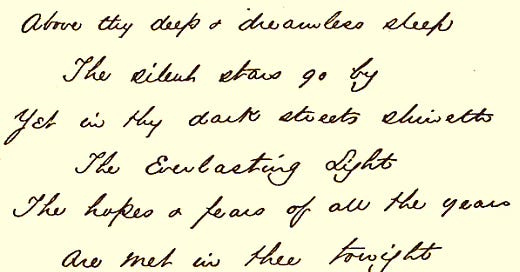 Above thy deep & dreamless sleep
The silent stars go by
Yet in thy dark streets shineth
The Everlasting Light
The hopes & fears of all the years
Are met in thee tonight